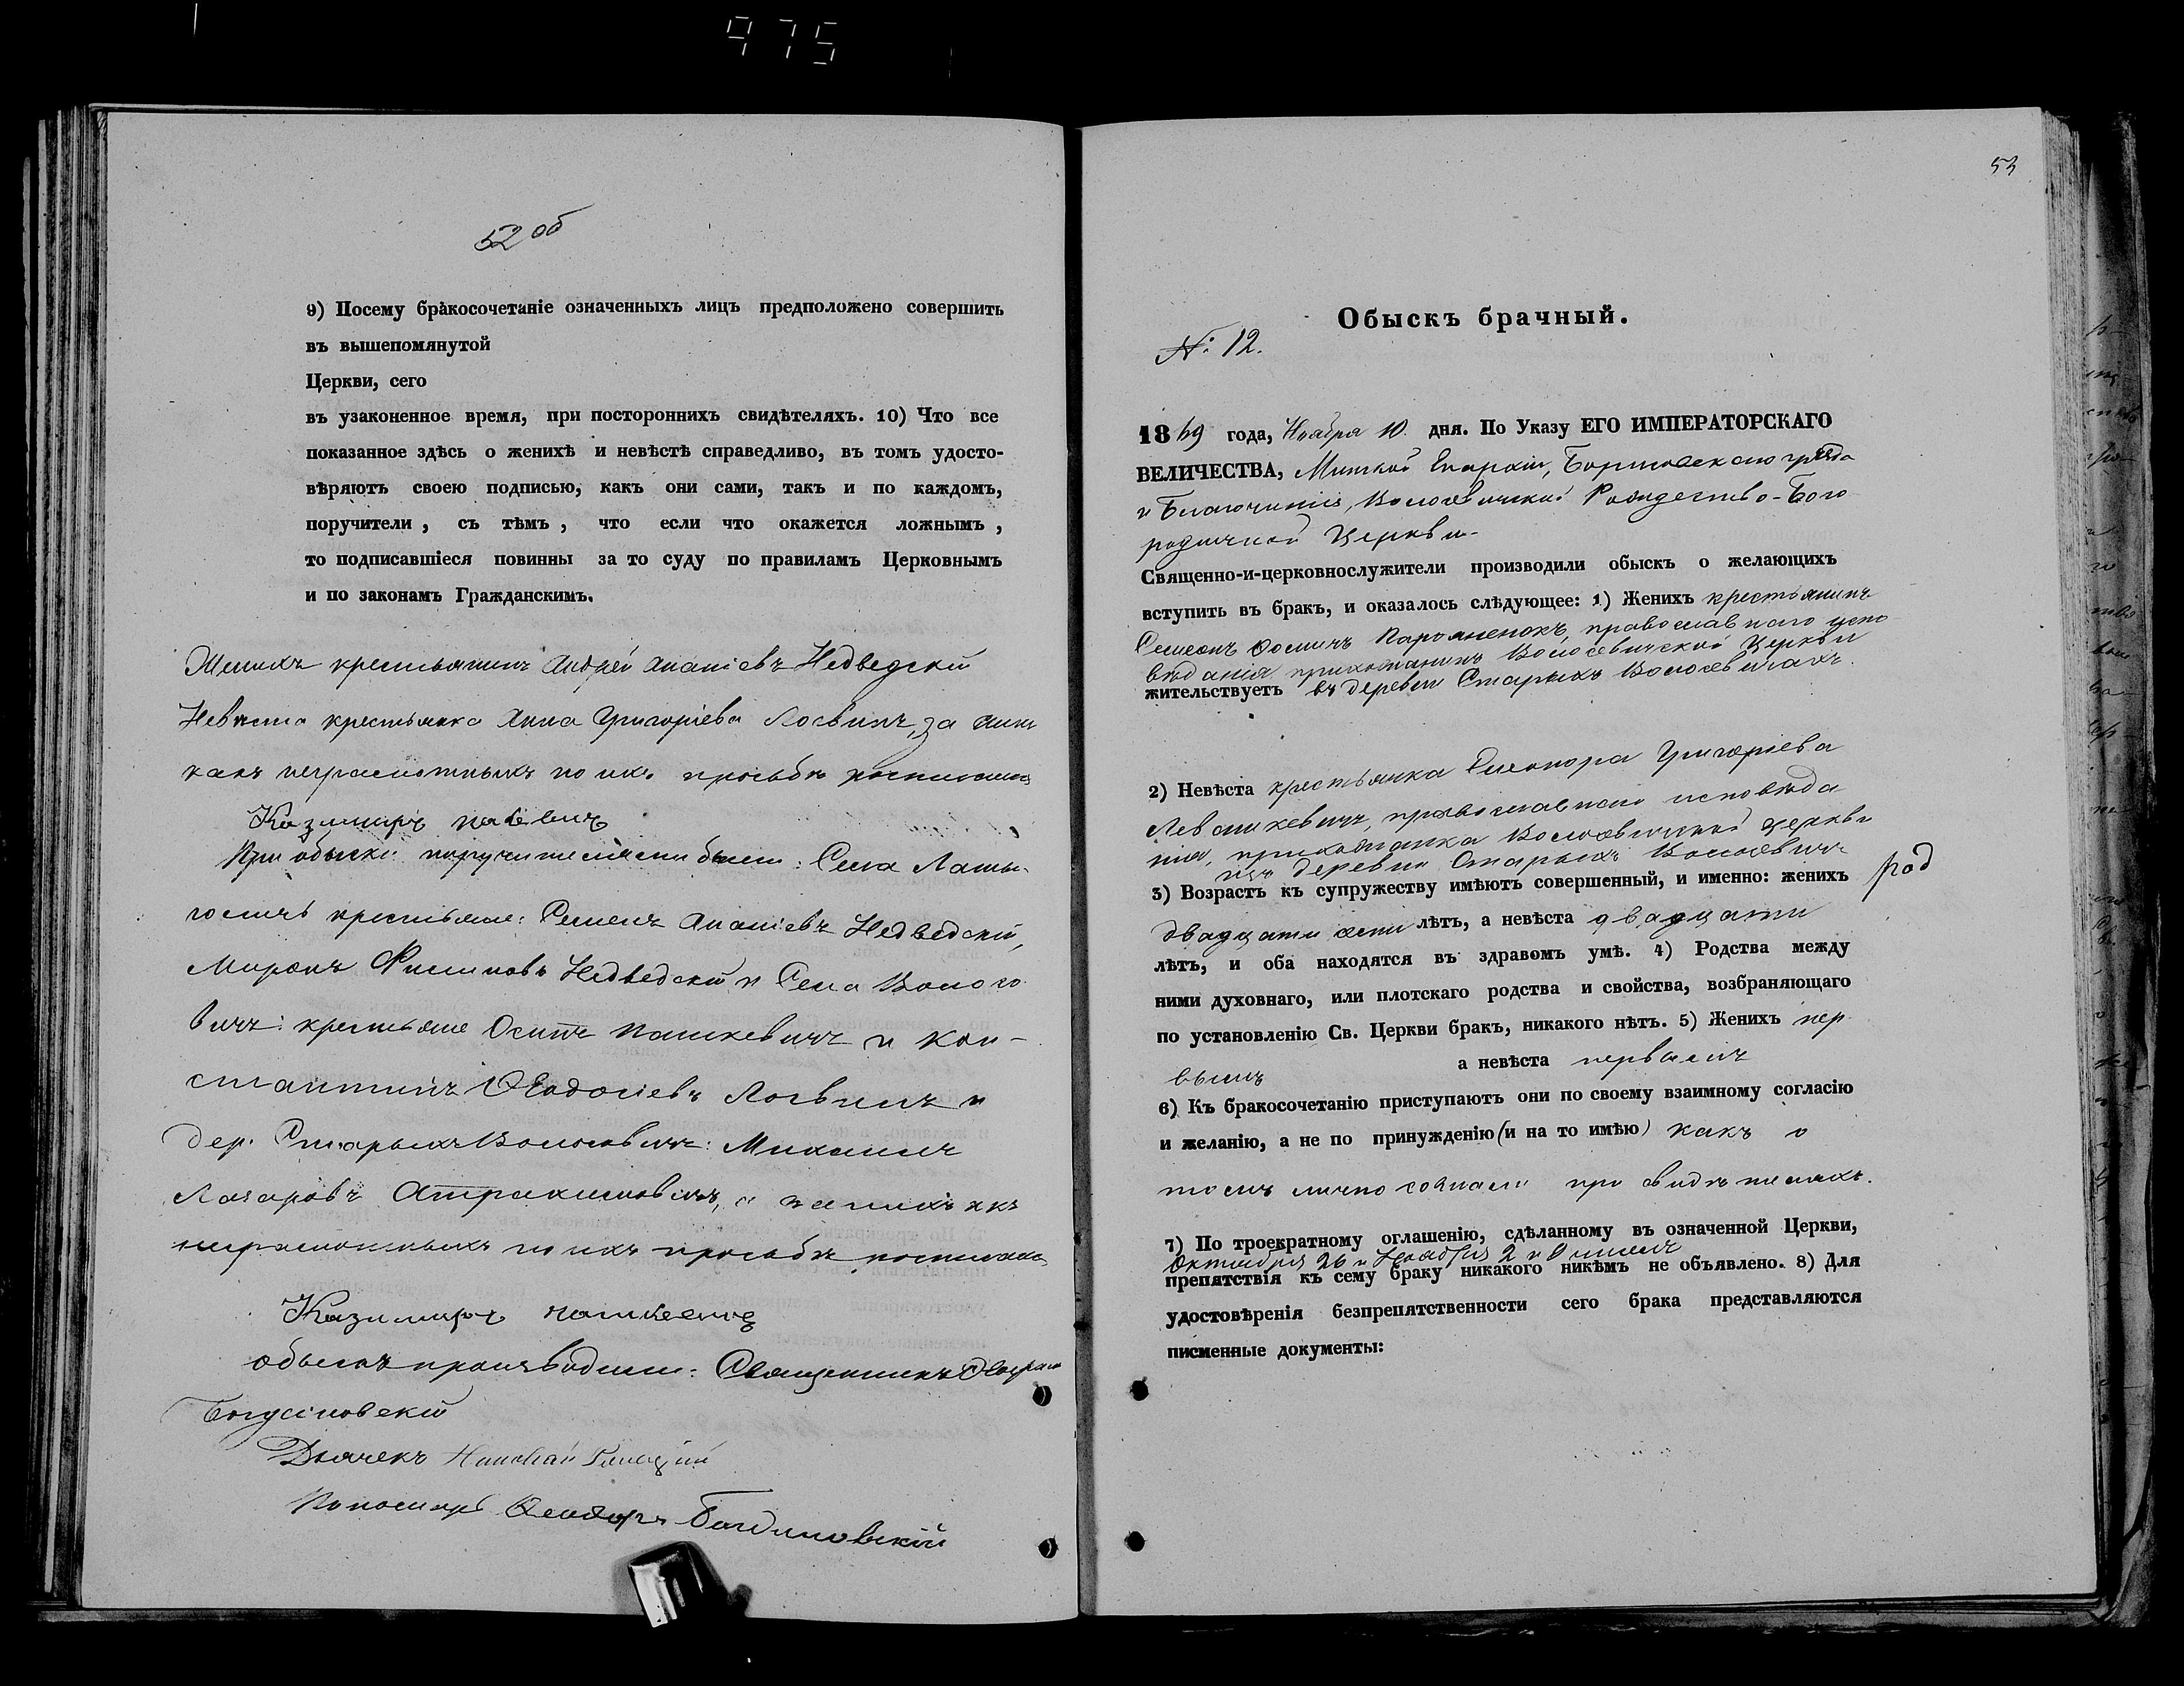 975
52 об
9) Посему бракосочетаніе означенныхъ лицъ предположено совершить
въ вышепомянутой
Церкви, сего
въ узаконенное время, при постороннихъ свидѣтеляхъ. 10) Что все
показанное здѣсь о женихѣ и невѣстѣ справедливо, въ томъ удосто-
вѣряютъ своею подписью, какъ они сами, такъ и по каждомъ,
поручители, съ тѣмъ, что если что окажется ложнымъ,
то подписавшіеся повинны за то суду по правиламъ Церковнымъ
и по законамъ Гражданскимъ.
Женихъ крестьянинъ Андрей Ананіевъ Недведскій
Невѣста крестьянка Анна Григоріева Логвинъ, за
какъ неграмотныхъ по ихъ просьбѣ
Казимиръ
При обыскѣ поручителями были: Села
крестьяне: Семенъ Ананіевъ Недведскій,
Миронъ Филиповъ Недведскій и Села
крестьяне Осипъ Пашкевичъ и Кон-
стантинъ Ѳеодосіевъ Логвинъ и
дер. Старыхъ Волосевичъ: Михаилъ
Лазаровъ
неграмотныхъ по ихъ просьбѣ
Казимиръ Пашкевичъ
Обыскъ производили: Священникъ
Дьячекъ
Пономарь Ѳеодоръ
53
Обыскъ брачный.
№ 12.
1869 года, Ноября 10. дня. По Указу ЕГО ИМПЕРАТОРСКАГО
ВЕЛИЧЕСТВА, Минской Епархіи, Борисовскаго уѣзда
и Благочинія, Волосевичской Рождество-Бого
родичной Церкви
Священно-и-церковнослужители производили обыскъ о желающихъ
вступить въ бракъ, и оказалось слѣдующее: 1) Женихъ крестьянинъ
Семеонъ православнаго испо
вѣданія прихожанинъ Волосевичской Церкви
жительствуетъ въ деревни Старыхъ Волосевичахъ.
2) Невѣста крестьянка Елеонора Григоріева
православнаго исповѣда
нія, прихожанка Волосевичской Церкви
изъ деревни Старыхъ Волосевичъ
3) Возрастъ къ супружеству имѣютъ совершенный, и именно: женихъ род
двадцати лѣтъ, а невѣста двадцати
лѣтъ, и оба находятся въ здравомъ умѣ. 4) Родства между
ними духовнаго, или плотскаго родства и свойства, возбраняющаго
по установленію Св. Церкви бракъ, никакого нѣтъ. 5) Женихъ пер
вымъ а невѣста первымъ
6) Къ бракосочетанію приступаютъ они по своему взаимному согласію
и желанію, а не по принужденію (и на то имѣю) какъ о
томъ лично при свидѣтеляхъ.
7) По троекратному оглашенію, сдѣланному въ означенной Церкви,
Октября 26 и Ноября 2 и 9 чиселъ
препятствія къ сему браку никакого никѣмъ не объявлено. 8) Для
удостовѣренія безпрепятственности сего брака представляются
писменные документы: